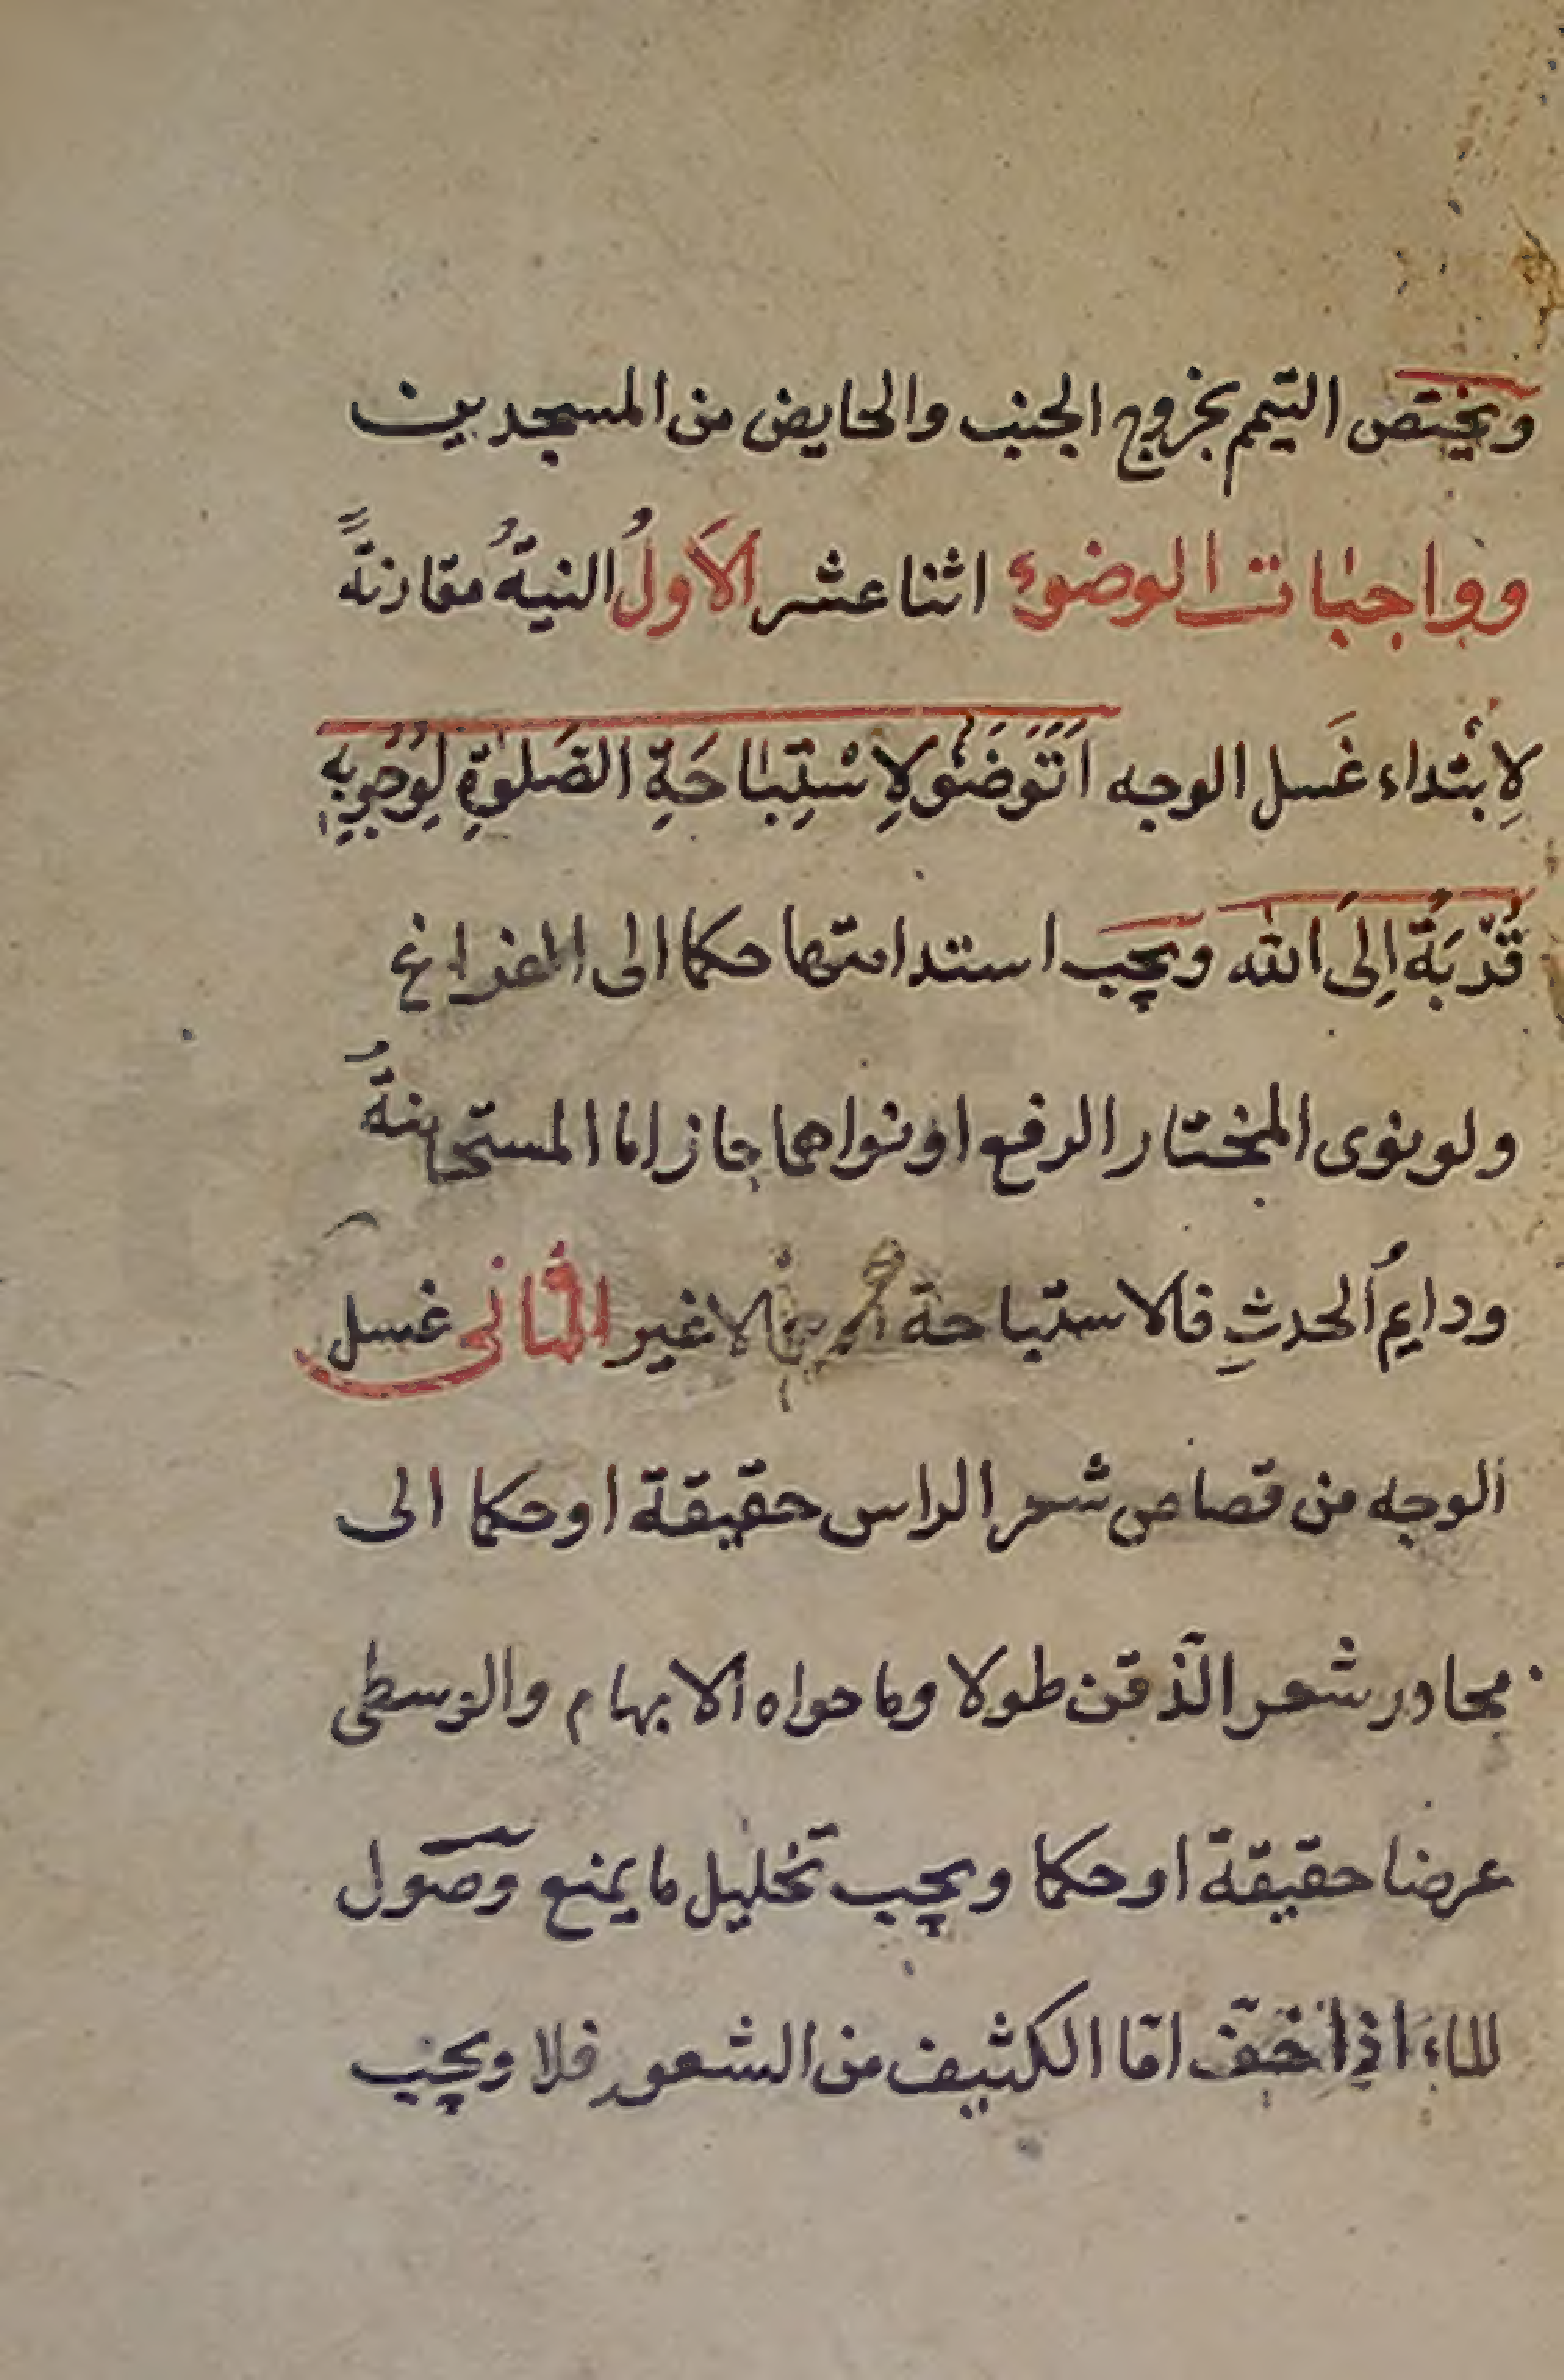 ويختص التيمم بخروج الجنب والحايض من المسجدين
وواجبات الوضوء اثنا عشر الأولُ النيةُ مقارنةً
لِابتداء غَسل الوجه اَتَوَضَّؤُ لِاسْتِبَاحَةِ الصَلوٰةِ لِوُجُوبِهِ
قُرْبَةً اِلَى الله ويجب استدامتها حكما الى الفراغ
ولو نوى المختار الرفع او نواهما جاز اما المستحاضةُ
ودايمُ الحدثِ فالاستباحة لا غير الثانى غسل
الوجه من قصاص شعر الراس حقيقة او حكما الى
محادر شعر الذقن طولا وما حواه الابهام والوسطى
عرضا حقيقة او حكما ويجب تخليل ما يمنع وصول
الماء اذا خفّ امّا الكثيف من الشعور فلا ويجب